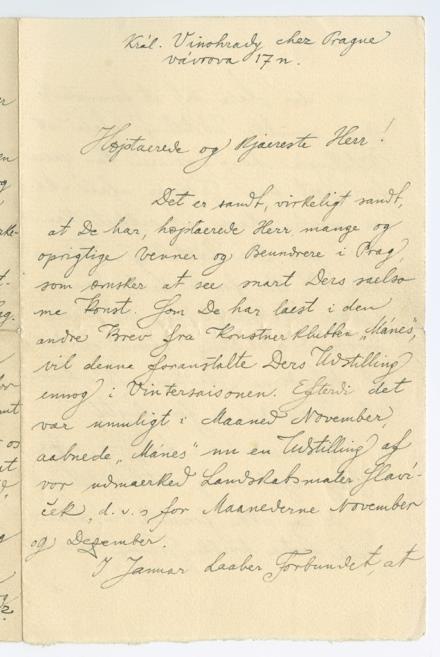 Král. Vinohrady chez Prague
Vávrova 17 n.
Højtaerede og Kjaereste Herr!
Det er sandt, virkeligt sandt,
at De har, højtaerede Herr mange og
oprigtige Venner og Beundrere i Prag,
som ønsker at see snart Ders saelso
me Konst. Som De har laest i den
andre Brev fra Konstnerklubben „Mánes",
vil denne foranstalte Ders Udstilling
ennog i Vintersaisonen. Efterdi det
var umuligt i Maaned November,
aabnede „Mánes" nu en Udstilling af
vor udmaerked Landskabsmaler Slaví-
ček, d. v. s for Maanederne November
og Dezember.
I Januar Laaber Forbundet, at